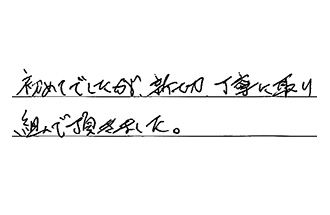 初めてでしたが、新切、丁寧に取り
組んで頂きました。